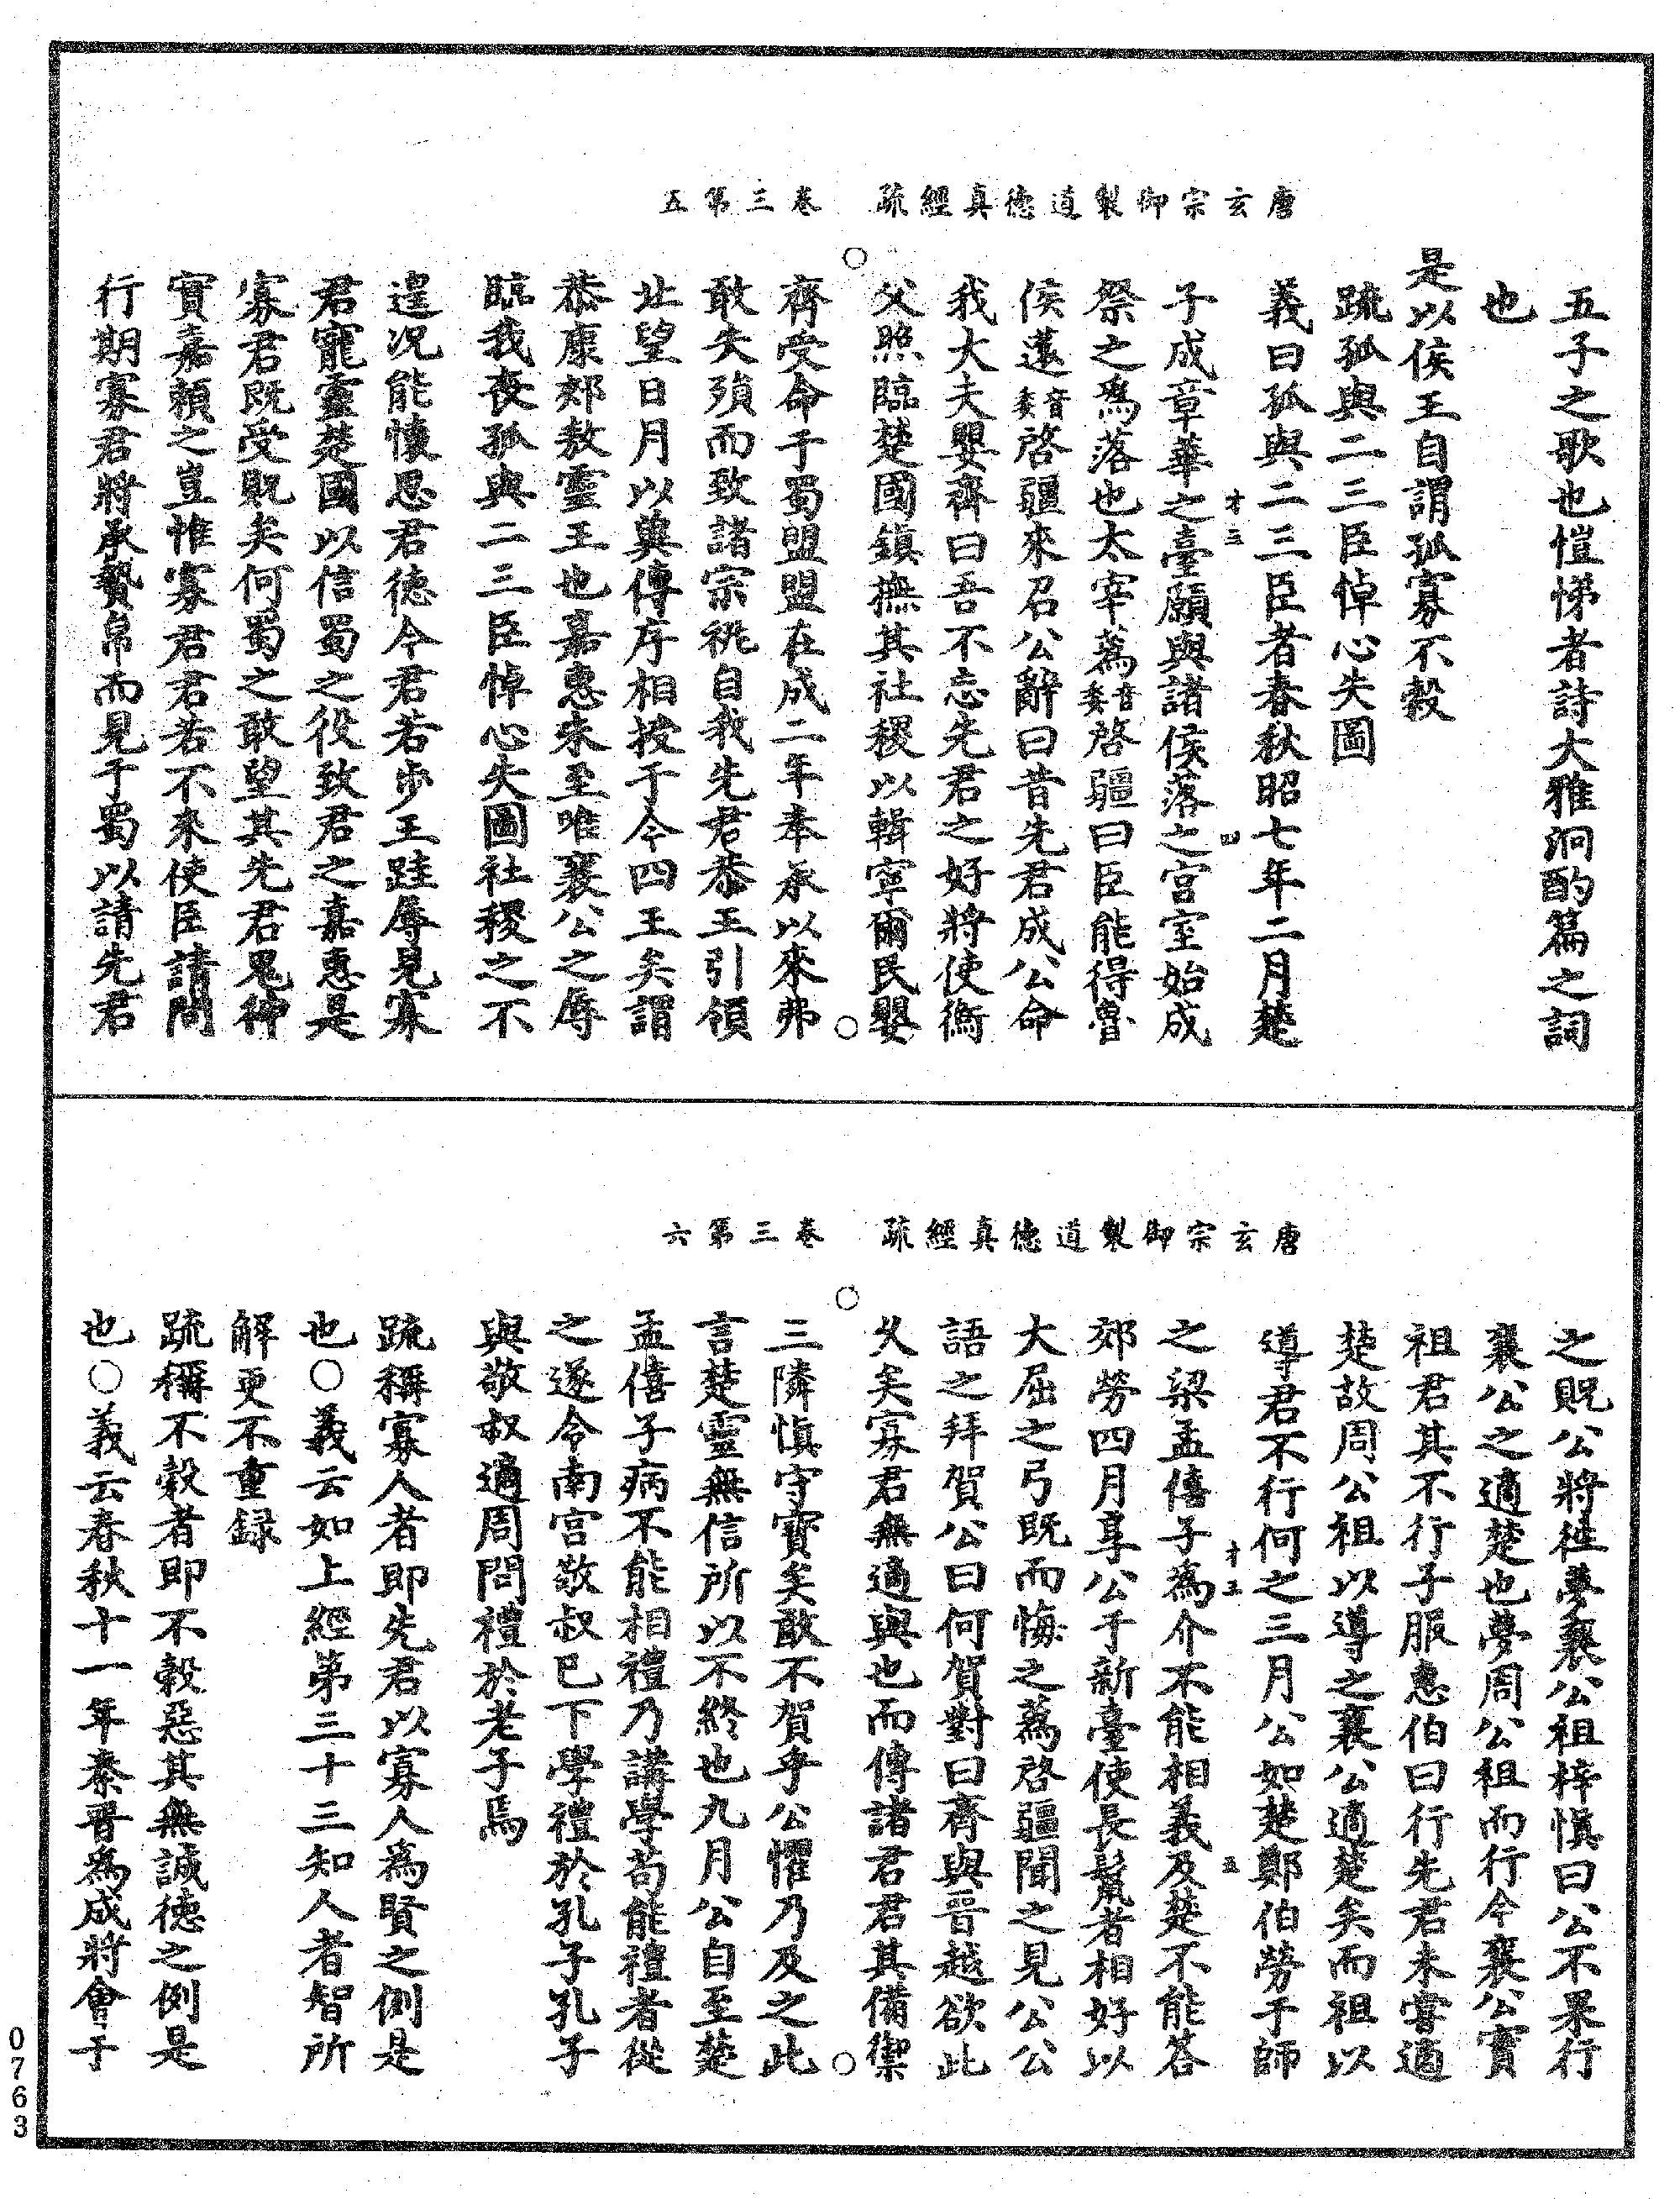 唐玄宗御製道德真經疏　卷三第五
五子之歌也愷悌者詩大雅泂酌篇之詞
也
是以侯王自謂孤寡不穀
疏孤與二三臣悼心失圖
義曰孤與二三臣者春秋昭七年二月楚
子成章華之臺願與諸侯落之宮室始成
祭之爲落也太宰薳音委啓疆曰臣能得魯
侯薳音委啓疆來召公辭曰昔先君成公命
我大夫嬰齊曰吾不忘先君之好將使衡
父照臨楚國鎮撫其社稷以輯寧爾民嬰
齊受命于蜀盟盟在成二年奉承以來弗
敢失殞而致諸宗祧自我先君恭王引領
北望日月以兾傳序相授于今四王矣謂
恭康郟敖靈王也嘉惠來至唯襄公之辱
臨我丧孤與二三臣悼心失圖社稷之不
遑況能懷思君德今君若步玉跬辱見寡
君寵靈楚國以信蜀之役致君之嘉惠是
寡君既受貺矣何蜀之敢望其先君鬼神
實嘉頼之豈惟寡君君若不來使臣請問
行期寡君將承贄帛而見于蜀以請先君
才三
四
唐玄宗御製道德真經疏　卷三第六
之貺公將徃夢襄公祖梓慎曰公不果行
襄公之適楚也夢周公祖而行今襄公實
祖君其不行子服惠伯曰行先君未嘗適
楚故周公祖以導之襄公適楚矣而祖以
導君不行何之三月公如楚鄭伯勞于師
之梁孟僖子爲介不能相義及楚不能答
郊勞四月享公于新臺使長鬣者相好以
大屈之弓既而悔之薳啓疆聞之見公公
語之拜賀公曰何賀對曰齊與晉越欲此
久矣寡君無適與也而傳諸君君其備禦
三隣慎守寶矣敢不賀乎公懼乃及之此
言楚靈無信所以不終也九月公自至楚
孟僖子病不能相禮乃講學苟能禮者從
之遂令南宮敬叔已下學禮於孔子孔子
與敬叔適周問禮於老子焉
疏稱寡人者即先君以寡人爲賢之例是
也○義云如上經第三十三知人者智所
解更不重録
疏稱不穀者即不穀惡其無誠德之例是
也○義云春秋十一年秦晉爲成將會于
才三
五
0763